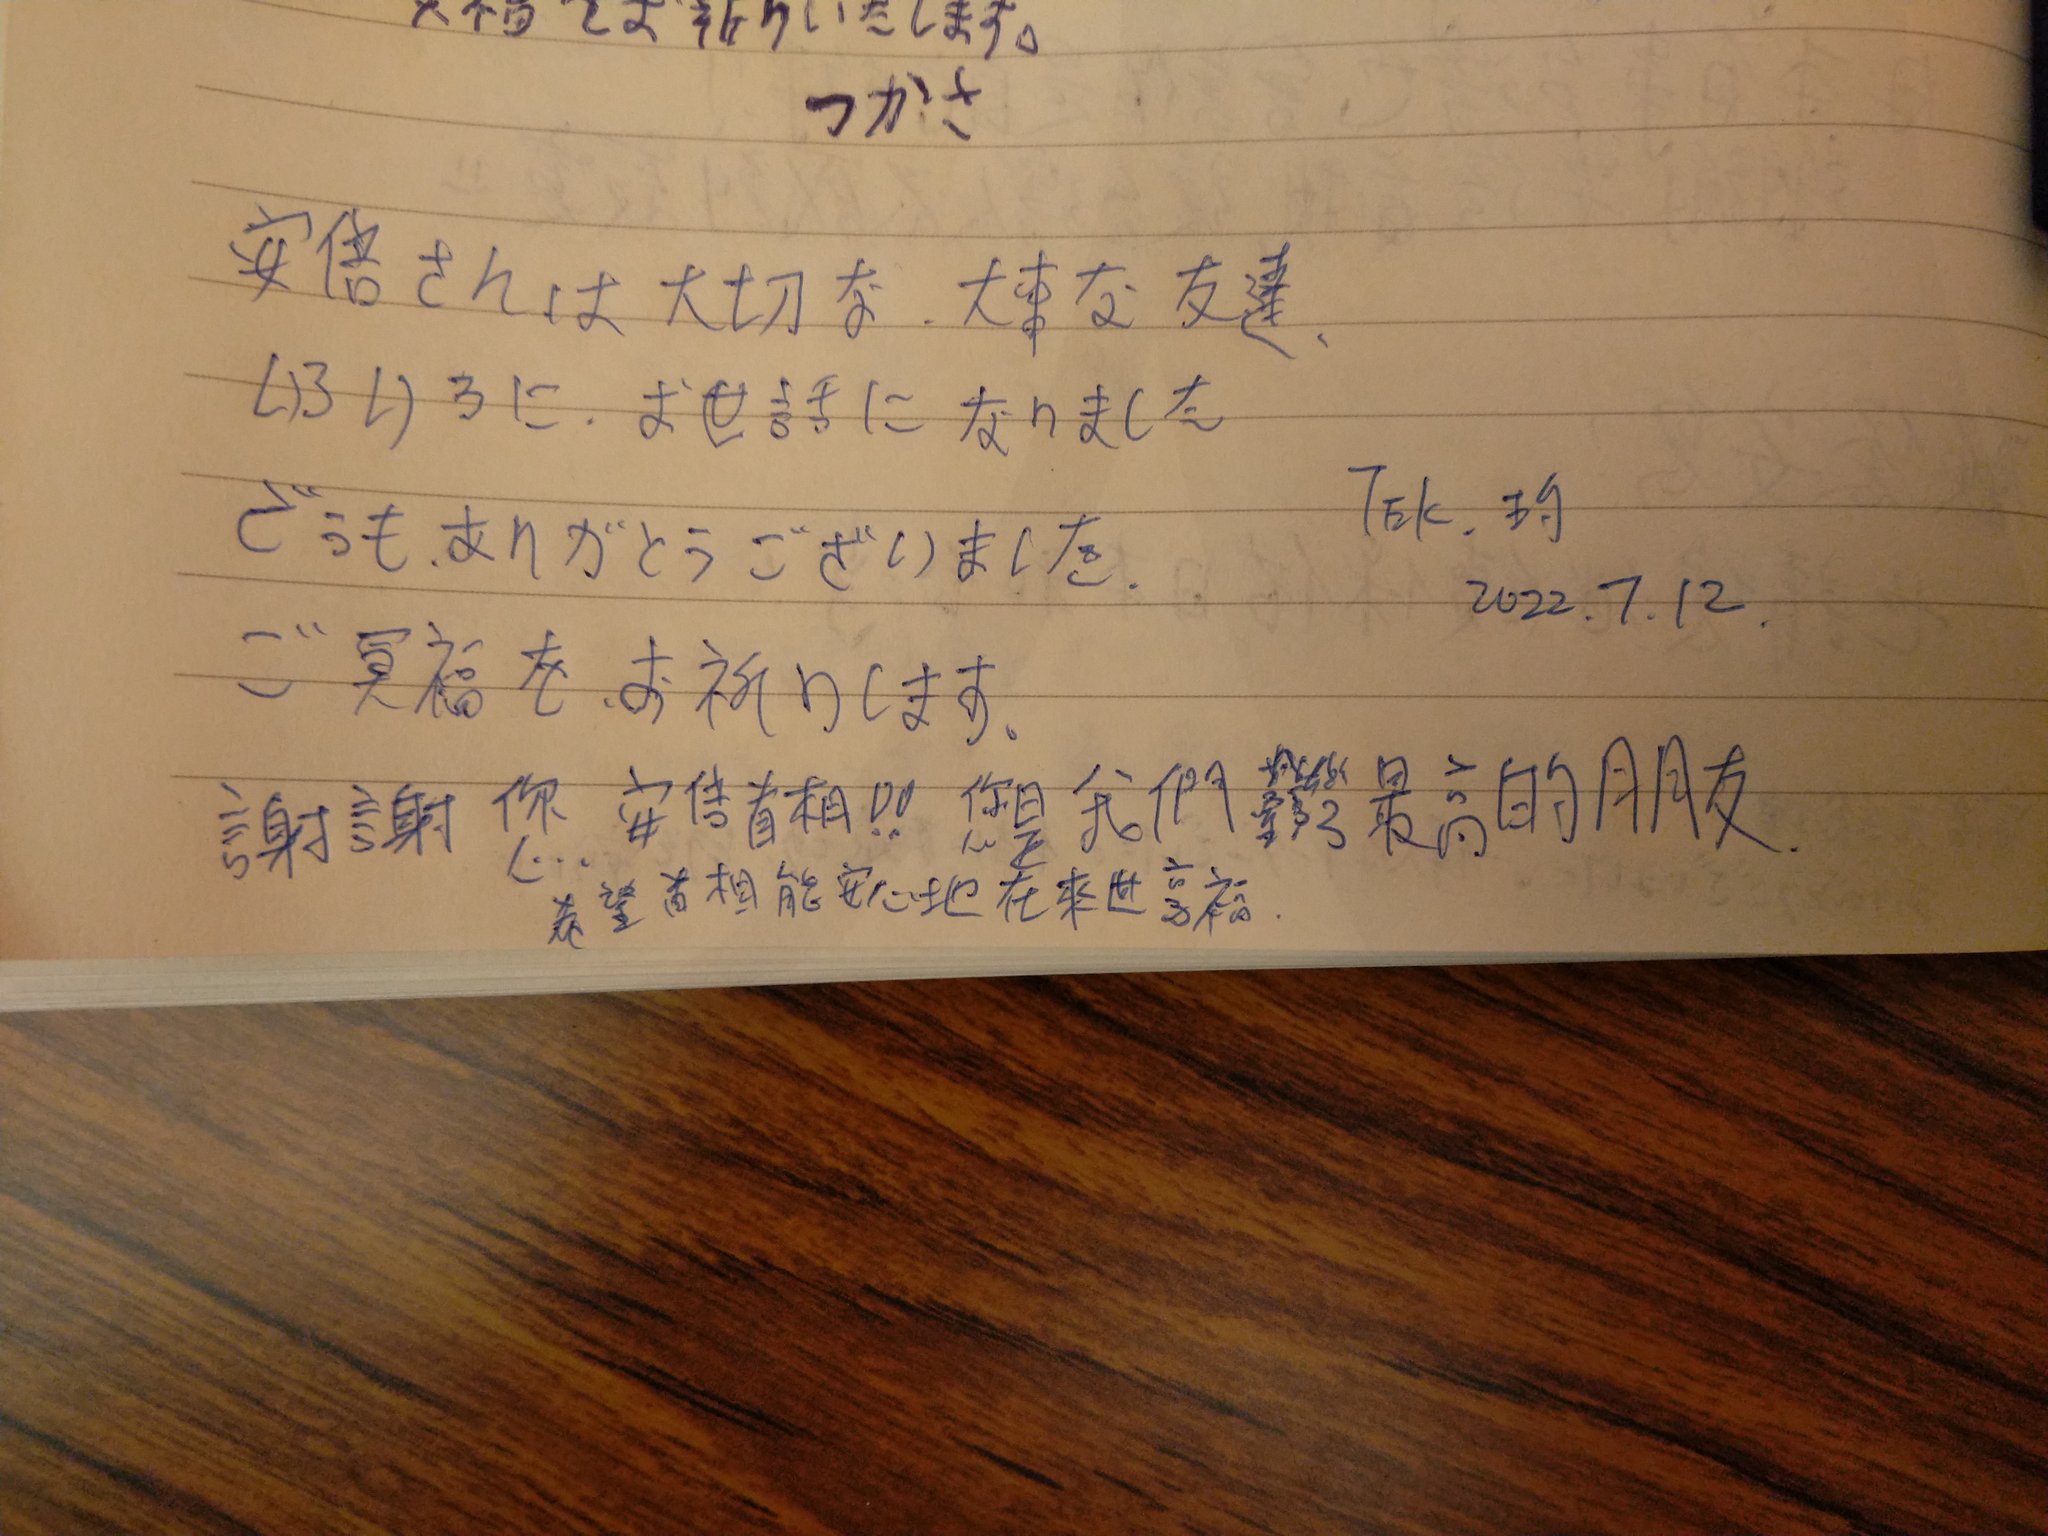 冥福をお祈りいたします。
つかさ
安倍さんは大切な.大事な友達、
いろいろに.お世話になりました
どうも.ありがとうございました.
TEK.均
2022.7.12.
ご冥福を.お祈りします。
謝謝您 安倍首相!! 您是我們 最高的朋友.
希望首相能安心地在來世享福.